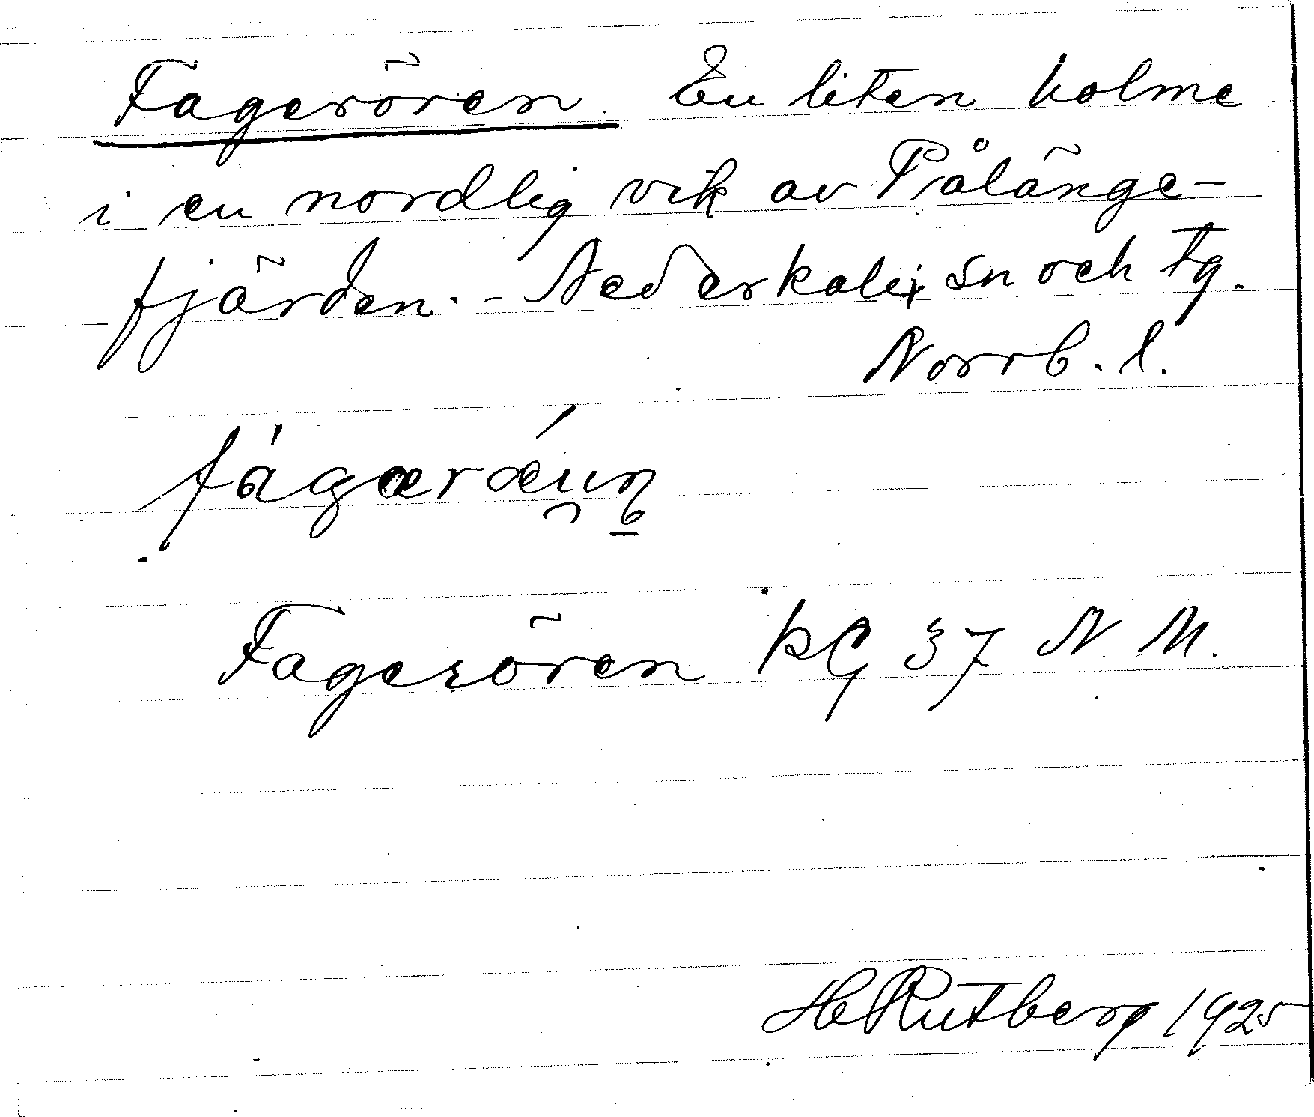 Fagerören. En liten holme
i en nordlig vik av Pålänge-
fjärden. - Nederkalix sn och tg.
Norrb. l.
fàgærǽun̥
Fagerören kG 37 N M.
H Rutberg 1925